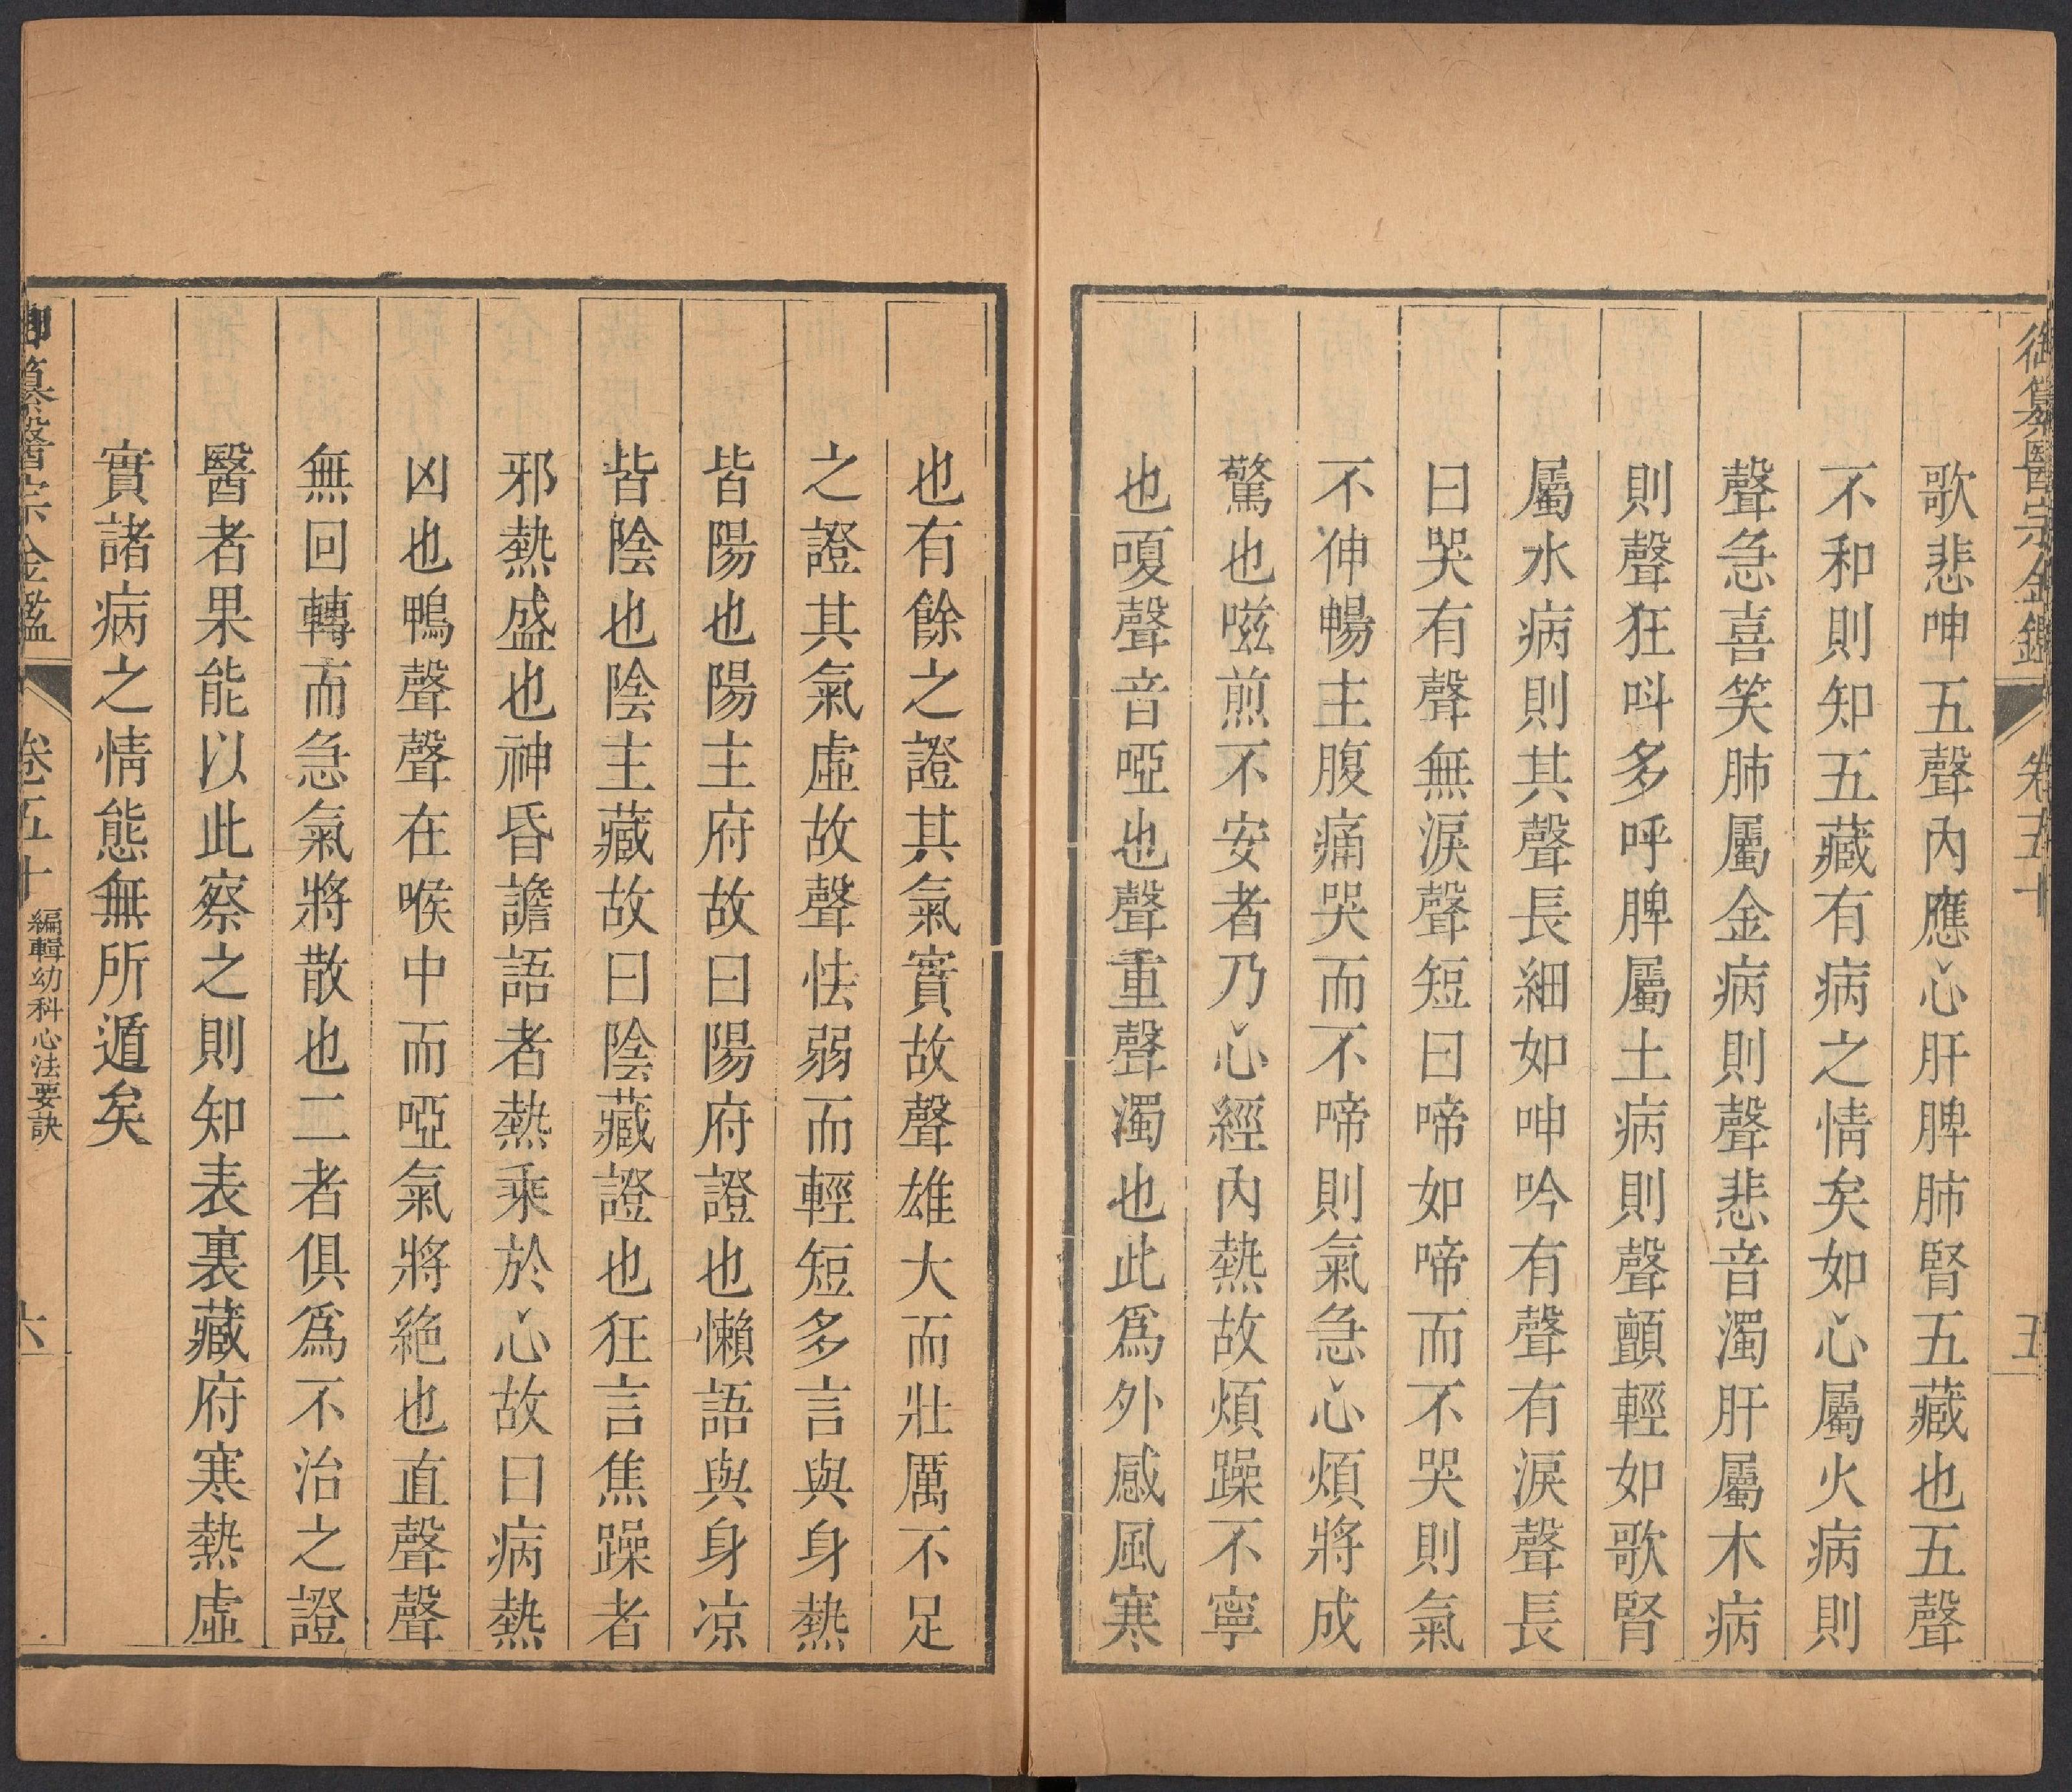 御纂醫宗金鑑 卷五十 五
歌悲呻五聲內應心肝脾肺腎五藏也五聲
不和則知五藏有病之情矣如心屬火病則
聲急喜笑肺屬金病則聲悲音濁肝屬木病
則聲狂呌多呼脾屬土病則聲顫輕如歌腎
屬水病則其聲長細如呻吟有聲有淚聲長
曰哭有聲無淚聲短曰啼如啼而不哭則氣
不伸暢主腹痛哭而不啼則氣急心煩將成
驚也嗞煎不安者乃心經內熱故煩躁不寧
也嗄聲音啞也聲重聲濁也此爲外感風寒
也有餘之證其氣實故聲雄大而壯厲不足
之證其氣虛故聲怯弱而輕短多言與身熱
皆陽也陽主府故曰陽府證也懶語與身凉
皆陰也陰主藏故曰陰藏證也狂言焦躁者
邪熱盛也神昏譫語者熱乘於心故曰病熱
凶也鴨聲聲在喉中而啞氣將絕也直聲聲
無回轉而急氣將散也二者俱爲不治之證
醫者果能以此察之則知表裏藏府寒熱虛
實諸病之情態無所遁矣
御纂醫宗金鑑 卷五十 編輯幼科心法要訣 六